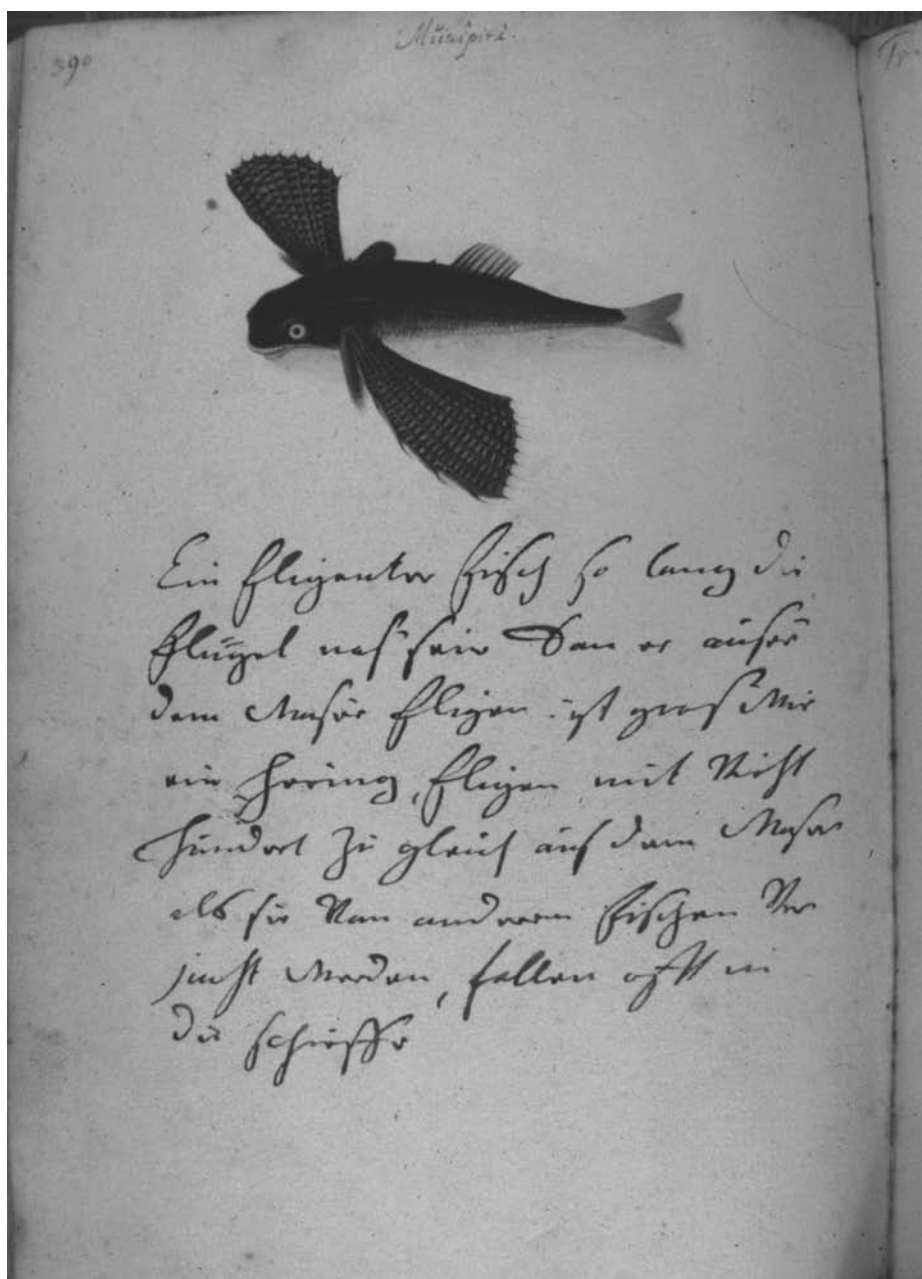 390
Ein fligenter fisch so lang die
flügel naß sein Kan er auser
dem Waser fligen ist groß Wie
ein Hering, fligen mit Vihl
hundert Zu gleich auß dem Waser
als sie Von anderen fischen Ver
jacht Werden, fallen offt in
die schieffe